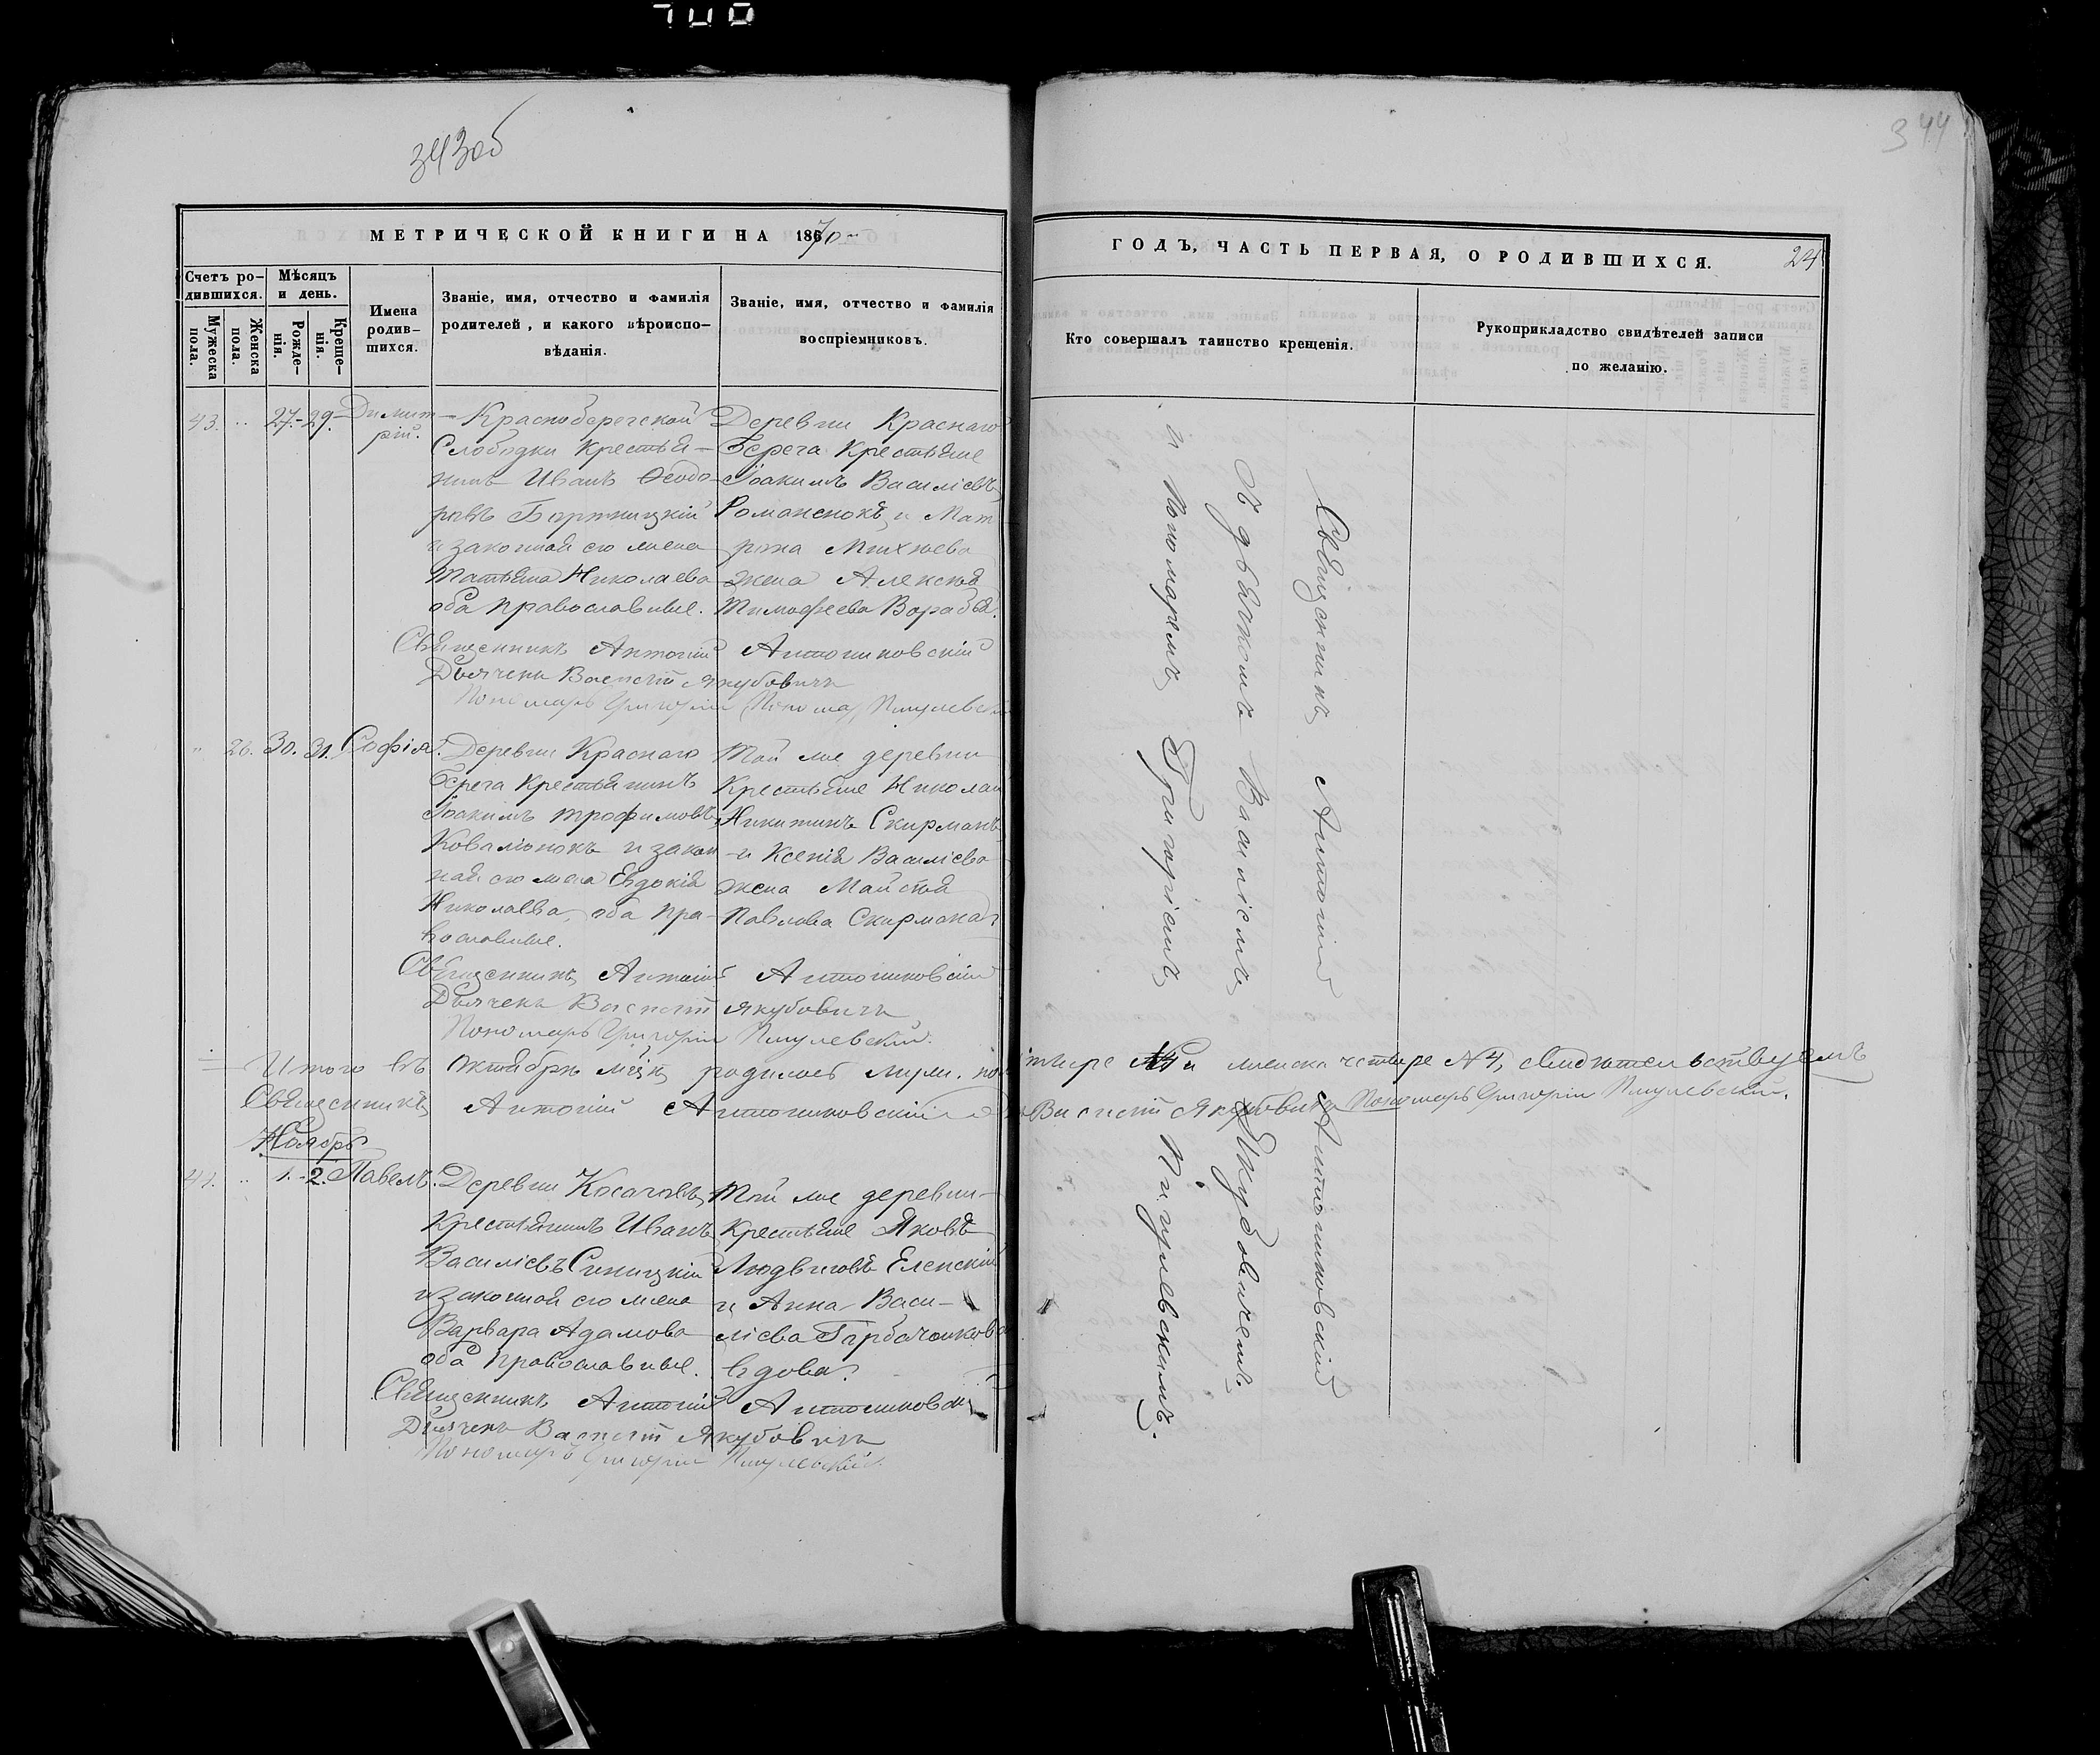 343об
344
МЕТРИЧЕСКОЙ КНИГИ НА 1870
ГОДЪ, ЧАСТЬ ПЕРВАЯ, О РОДИВШИХСЯ.
24
Счетъ ро-
дившихся.
Мужеска
пола.
Женска
пола.
Мѣсяцъ
и день.
Рожде-
нія.
Креще-
нія.
Имена
родив-
шихся.
Званіе, имя, отчество и фамилія
родителей, и какого вѣроиспо-
вѣданія.
Званіе, имя, отчество и фамилія
воспріемниковъ.
Кто совершалъ таинство крещенія.
Рукоприкладство свидѣтелей записи
по желанію.
43. 27.-29. Димит-
рій.
Краснобережской
Слободки крестья-
нинъ Иванъ Ѳеодо-
ровъ Бортницкій
и законная его жена
Татьяна Николаева
оба православные.
Деревни Краснаго
Берега крестьяне
Іоакимъ Василіевъ
Романенокъ и Мат
рона Михнева
жена Алексѣя
Тимофеева Воробья.
Священникъ Антоній Антониковскій
Дьячекъ Василій Якубовичъ
Пономарь Григорій Пигулевскій
26. 30. 31. Софія.
Деревни Краснаго
Берега крестьянинъ
Іоакимъ Трофимовъ
Коваліонокъ и закон
ная его жена Евдокія
Николаева, оба пра-
вославные.
Той же деревни
крестьяне Николай
Никитинъ Скирманъ
и Ксенія Василіева
жена
Павлова Скирмана
Священникъ Антоній Антониковскій
Дьячекъ Василій Якубовичъ
Пономарь Григорій Пигулевскій.
Итого въ Октябрѣ м-цѣ родилось муж. пол
тыре №4 и женска четыре №4, свидѣтельствуемъ
Священникъ Антоній Антониковскій
Василій Якубовичъ Пономарь Григорій Пигулевскій.
Ноябрь
44. 1.-2. Павелъ.
Деревни Косачовъ
крестьянинъ Иванъ
Василіевъ Синицкій
и законная его жена
Варвара Адамова
оба православные.
Той же деревни
крестьяне Яковъ
Людвиговъ Еленскій
и Анна Васи-
ліева Горбачонкова
вдова.
Священникъ Антоній Антониковскій
Дьячекъ Василій Якубовичъ
Пономарь Григорій Пигулевскій.
Священникъ Антоній Антониковскій
съ дьячкомъ Василіемъ Якубовичемъ
и пономаремъ Григоріемъ Пигулевскимъ.